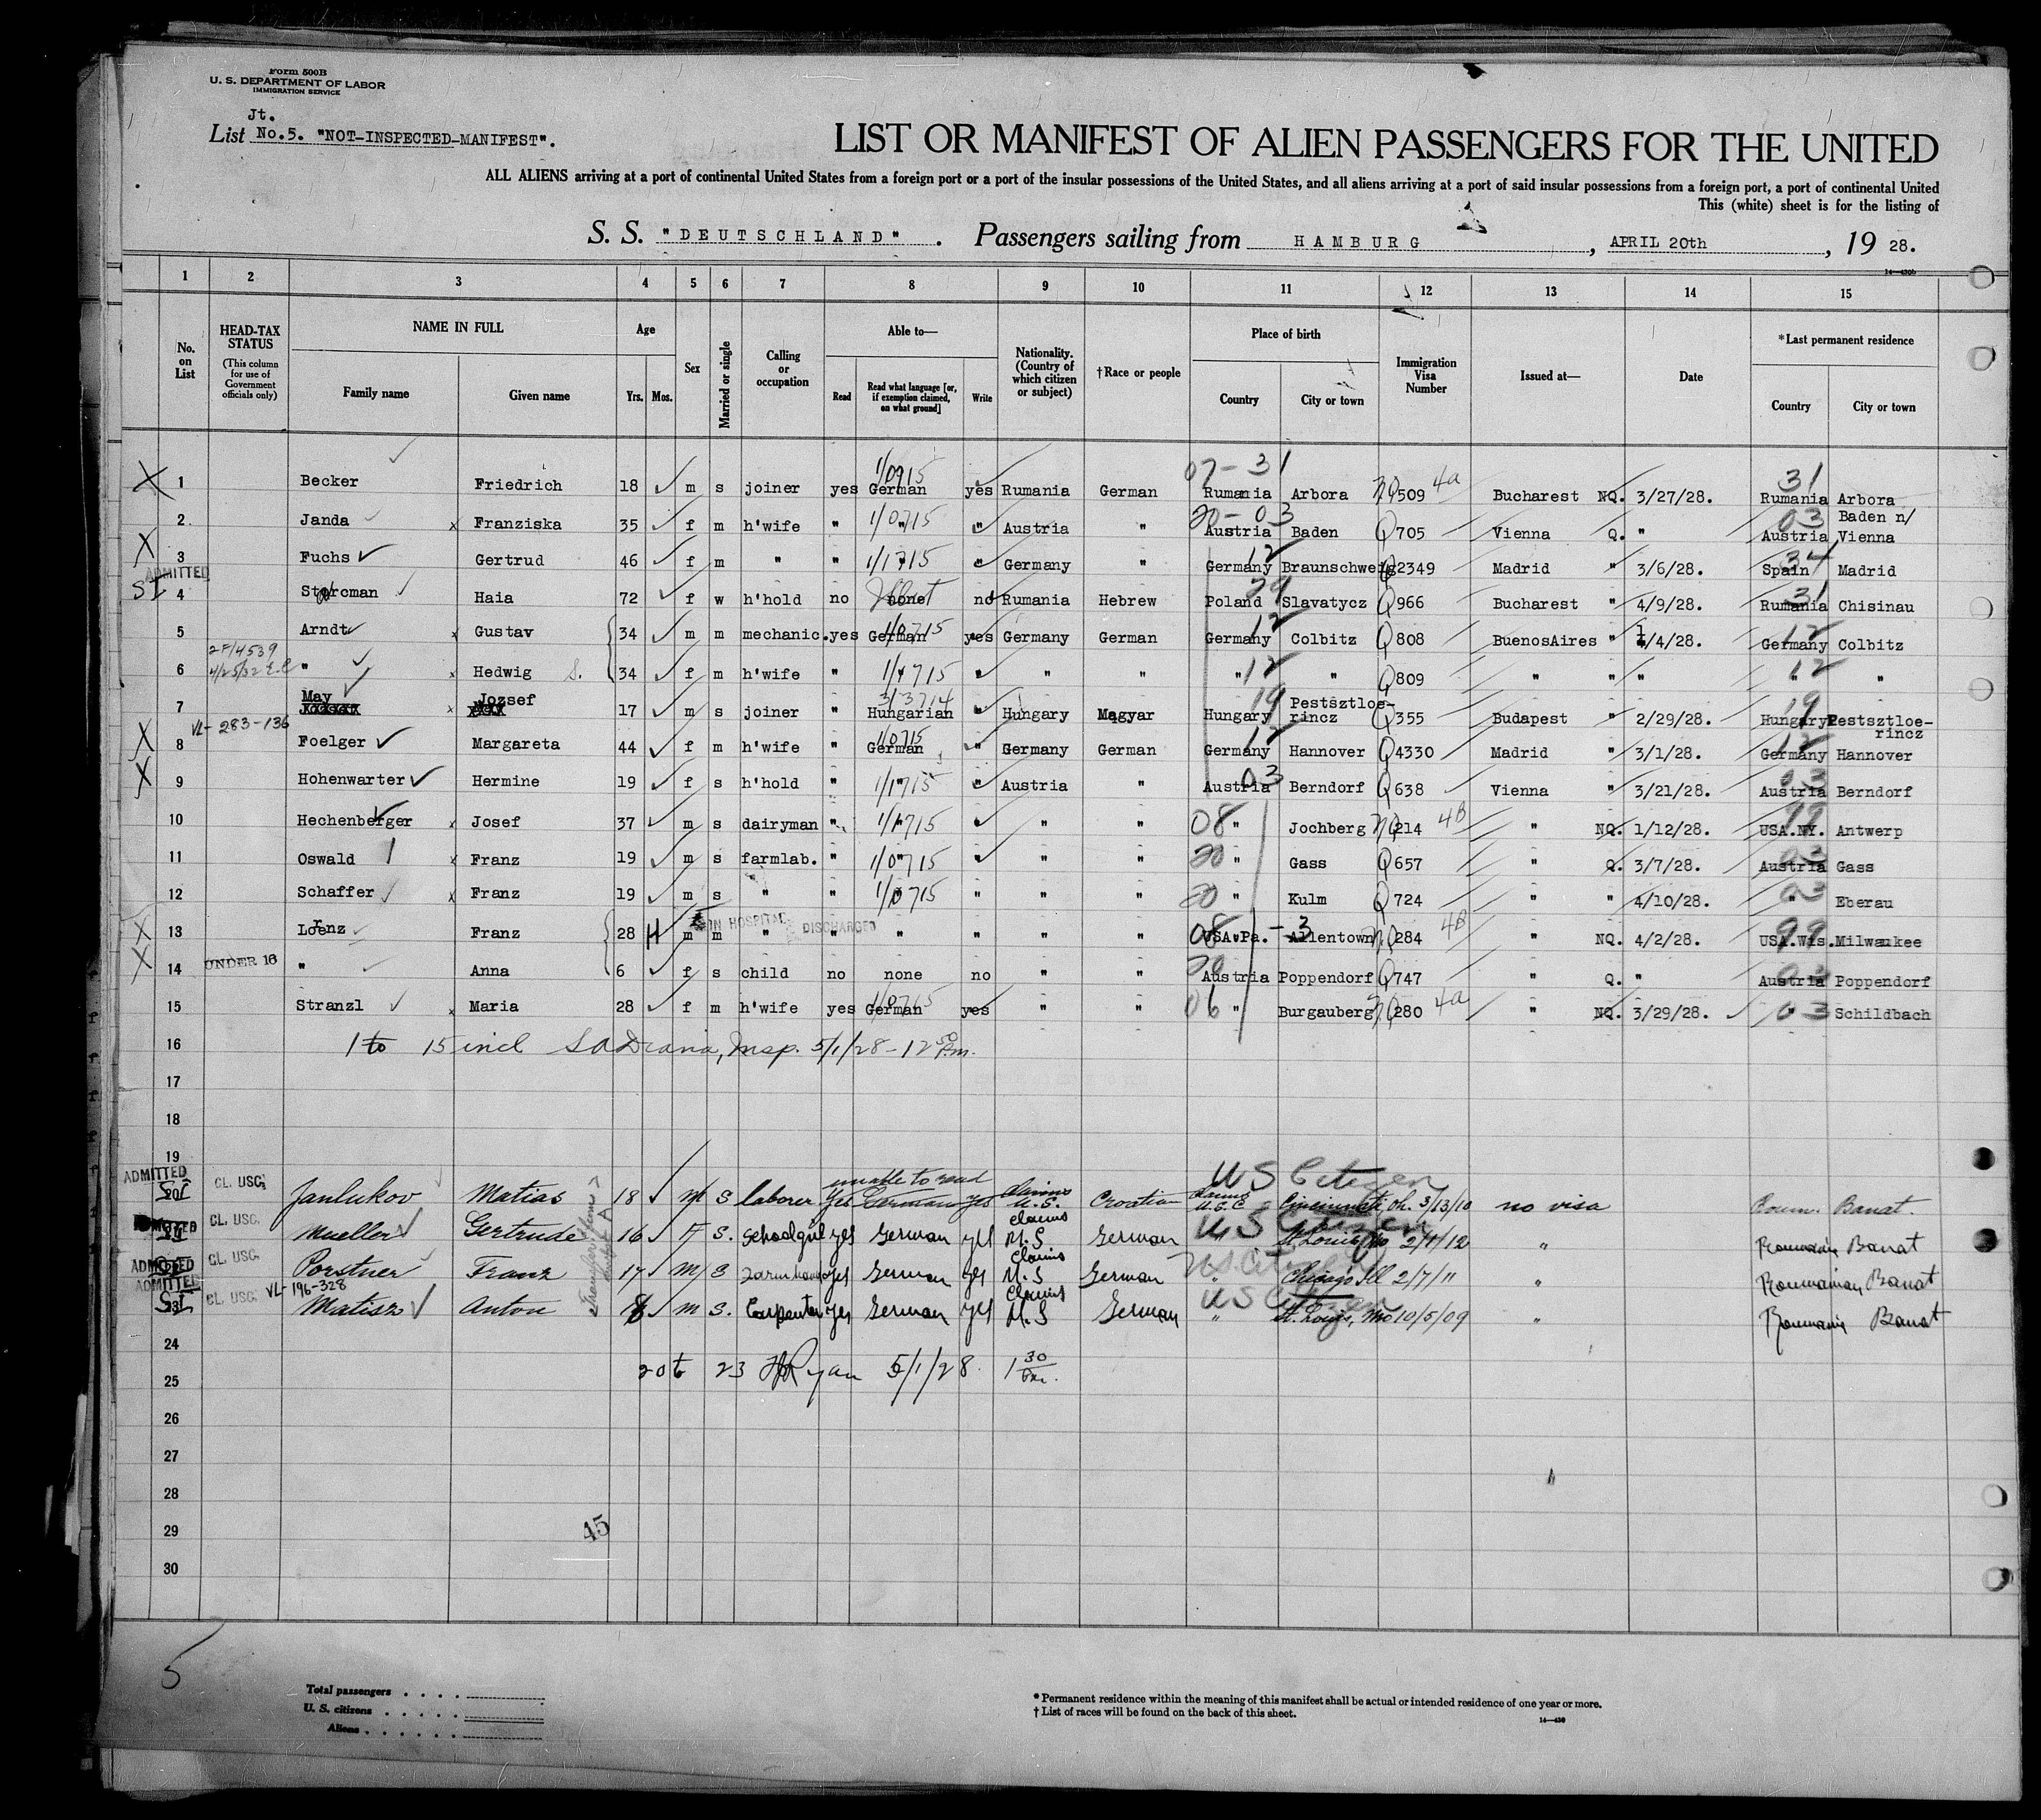 Form 500B
U. S. DEPARTMENT OF LABOR
IMMIGRATION SERVICE
Jt.
List No.5. "NOT-INSPECTED-MANIFEST".
LIST OR MANIFEST OF ALIEN PASSENGERS FOR THE UNITED
ALL ALIENS arriving at a port of continental United States from a foreign port or a port of the insular possessions of the United States, and all aliens arriving at a port of said insular possessions from a foreign port, a port of continental United
This (white) sheet is for the listing of
S. S. "DEUTSCHLAND". Passengers sailing from HAMBURG, APRIL 20th, 19 28.
14—430b
1 2 3 4 5 6 7 8 9 10 11 12 13 14 15
No. on List
HEAD-TAX STATUS (This column for use of Government officials only)
NAME IN FULL
Family name Given name
Age
Yrs. Mos.
Sex
Married or single
Calling or occupation
Able to—
Read Read what language [or, if exemption claimed, on what ground] Write
Nationality. (Country of which citizen or subject)
†Race or people
Place of birth
Country City or town
Immigration Visa Number
Issued at—
Date
*Last permanent residence
Country City or town
07-31 31
X 1 Becker Friedrich 18 m s joiner yes German yes Rumania German Rumania Arbora NQ 509 4a Bucharest NQ. 3/27/28. Rumania Arbora
2 Janda x Franziska 35 f m h'wife " " " Austria " Austria Baden Q 705 Vienna Q. " Austria Baden n/ Vienna
X 3 Fuchs Gertrud 46 f m " " " " Germany " Germany Braunschweig Q 2349 Madrid " 3/6/28. Spain Madrid
ADMITTED
SI 4 Haia 72 f w h'hold no none no Rumania Hebrew Poland Slavatycz Q 966 Bucharest " 4/9/28. Rumania Chisinau
5 Arndt x Gustav 34 m m mechanic. yes German yes Germany German Germany Colbitz Q 808 BuenosAires " /4/28. Germany Colbitz
2F/4539
4/25/32
6 " x Hedwig S. 34 f m h'wife " " " " " " " Q 809 " " " " "
7 May x Jozsef 17 m s joiner " Hungarian " Hungary Magyar Hungary Pestsztloe-rincz Q 355 Budapest " 2/29/28. Hungary Pestsztloe-rincz
VL-283-136
X 8 Foelger Margareta 44 f m h'wife " German " Germany German Germany Hannover Q 4330 Madrid " 3/1/28. Germany Hannover
X 9 Hohenwarter Hermine 19 f s h'hold " " " Austria " Austria Berndorf Q 638 Vienna " 3/21/28. Austria Berndorf
10 Hechenberger x Josef 37 m s dairyman " " " " " 08 " Jochberg NQ 214 4B " NQ. 1/12/28. USA.NY. Antwerp
11 Oswald x Franz 19 m s farmlab. " " " " " 20 " Gass Q 657 " Q. 3/7/28. Austria Gass
12 Schaffer x Franz 19 m s " " " " " 20 " Kulm Q 724 " " 4/10/28. " Eberau
IN HOSPITAL DISCHARGED
X 13 Lorenz Franz 28 m m " " " " " " USA.Pa. Allentown NQ 284 4B " NQ. 4/2/28. USA.Wis. Milwaukee
X 14 UNDER 16 " Anna 6 f s child no none no " " Austria Poppendorf Q 747 " Q. " Austria Poppendorf
15 Stranzl x Maria 28 f m h'wife yes German yes " " 06 " Burgauberg NQ 280 4a " NQ. 3/29/28. 03 Schildbach
16 1 to 15 incl Insp. 5/1/28-12 50 P.m.
17
18
19
ADMITTED SI
20 CL. USC. Janlukov Matias 18 m s laborer unable to read yes German yes Claims U.S. Croatian Claims U.S.C US Citizen Cincinnati Oh. 3/13/10 no visa Roum. Banat.
ADMITTED
CL. USC. Mueller Gertrude 16 F S. Schoolgirl yes German yes Claims U.S German " US Citizen St. Louis Mo 2/1/12 " Roumania Banat
ADMITTED
CL. USC. Porstner Franz 17 M S Farmhand yes German yes Claims U.S German " US Citizen Chicago Ill 2/7/11 " Roumanian Banat
ADMITTED SI VL-196-328
23 CL. USC. Matisz Anton 18 m S. Carpenter yes German yes Claims U.S German " US Citizen St. Louis, Mo 10/5/09 " Roumania Banat
24
20 to 23 Ryan 5/1/28. 1 30 P.m.
25
26
27
28
29
45
30
5
Total passengers
U. S. citizens
Aliens
* Permanent residence within the meaning of this manifest shall be actual or intended residence of one year or more.
† List of races will be found on the back of this sheet.
14—430